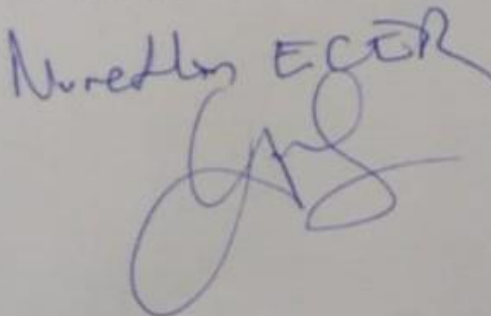 Nurettin ECER